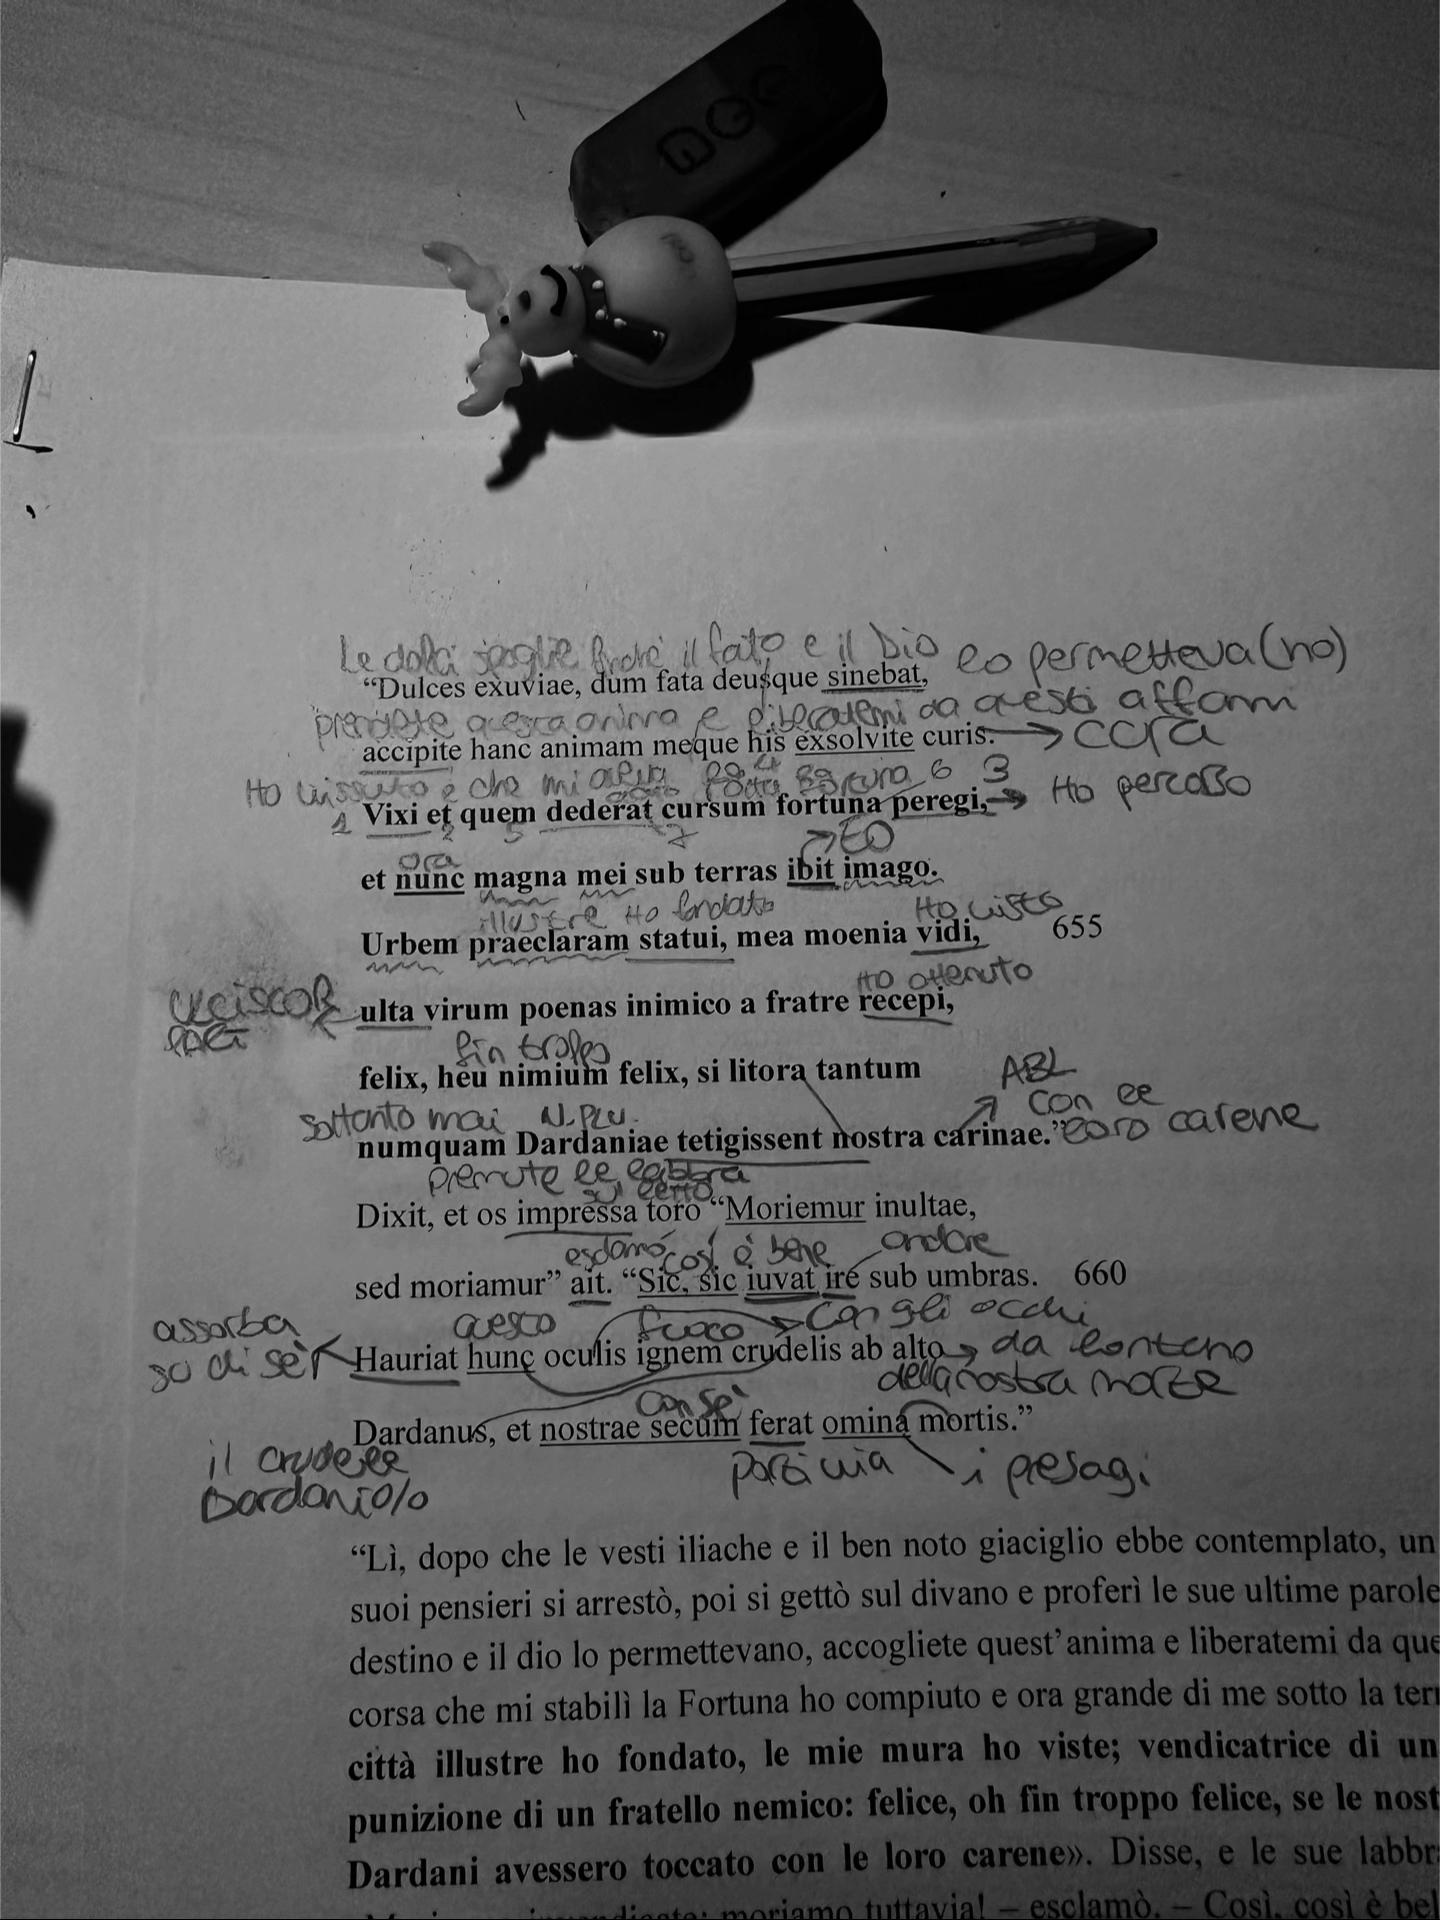 Le dolci spoglie finché il fato e il Dio lo permetteva(no)
“Dulces exuviae, dum fata deusque sinebat,
prendete questa anima e liberatemi da questi affanni
accipite hanc animam meque his exsolvite curis. → cura
Ho vissuto e che mi aveva fortuna 6 3
Vixi et quem dederat cursum fortuna peregi, → Ho percorso
1 2 5 7
ora → EO
et nunc magna mei sub terras ibit imago.
illustre Ho fondato Ho visto
Urbem praeclaram statui, mea moenia vidi, 655
Ho ottenuto
ulciscor
ulta virum poenas inimico a fratre recepi,
fin troppo
felix, heu nimium felix, si litora tantum
ABL
soltanto mai N.PLU. con le
numquam Dardaniae tetigissent nostra carinae.” loro carene
premute le labbra
sul letto
Dixit, et os impressa toro “Moriemur inultae,
esclamò così è bene andare
sed moriamur” ait. “Sic, sic iuvat ire sub umbras. 660
assorba questo fuoco → con gli occhi
su di sé Hauriat hunc oculis ignem crudelis ab alto → da lontano
della nostra morte
con sé
Dardanus, et nostrae secum ferat omina mortis.”
il crudele porti via i presagi
Dardanio/o
“Lì, dopo che le vesti iliache e il ben noto giaciglio ebbe contemplato, un
suoi pensieri si arrestò, poi si gettò sul divano e proferì le sue ultime parole
destino e il dio lo permettevano, accogliete quest’anima e liberatemi da que
corsa che mi stabilì la Fortuna ho compiuto e ora grande di me sotto la terr
città illustre ho fondato, le mie mura ho viste; vendicatrice di un
punizione di un fratello nemico: felice, oh fin troppo felice, se le nost
Dardani avessero toccato con le loro carene». Disse, e le sue labbr
moriamo tuttavia! – esclamò. – Così, così è bel